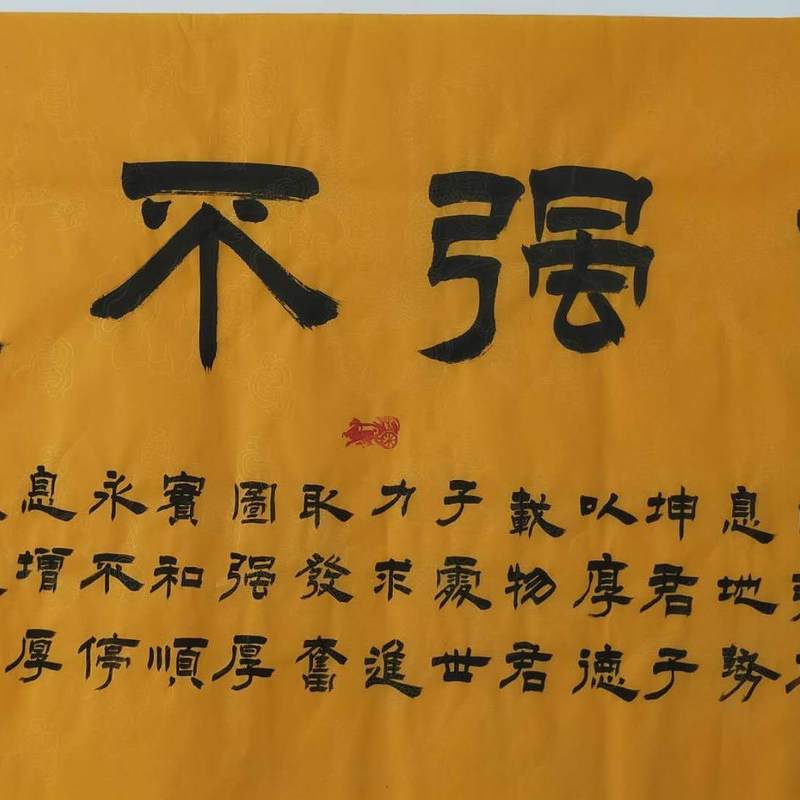 强不
息地勢
坤君子
以厚德
載物君
子處世
力求進
取發奮
圖强厚
實和順
永不停
息增厚